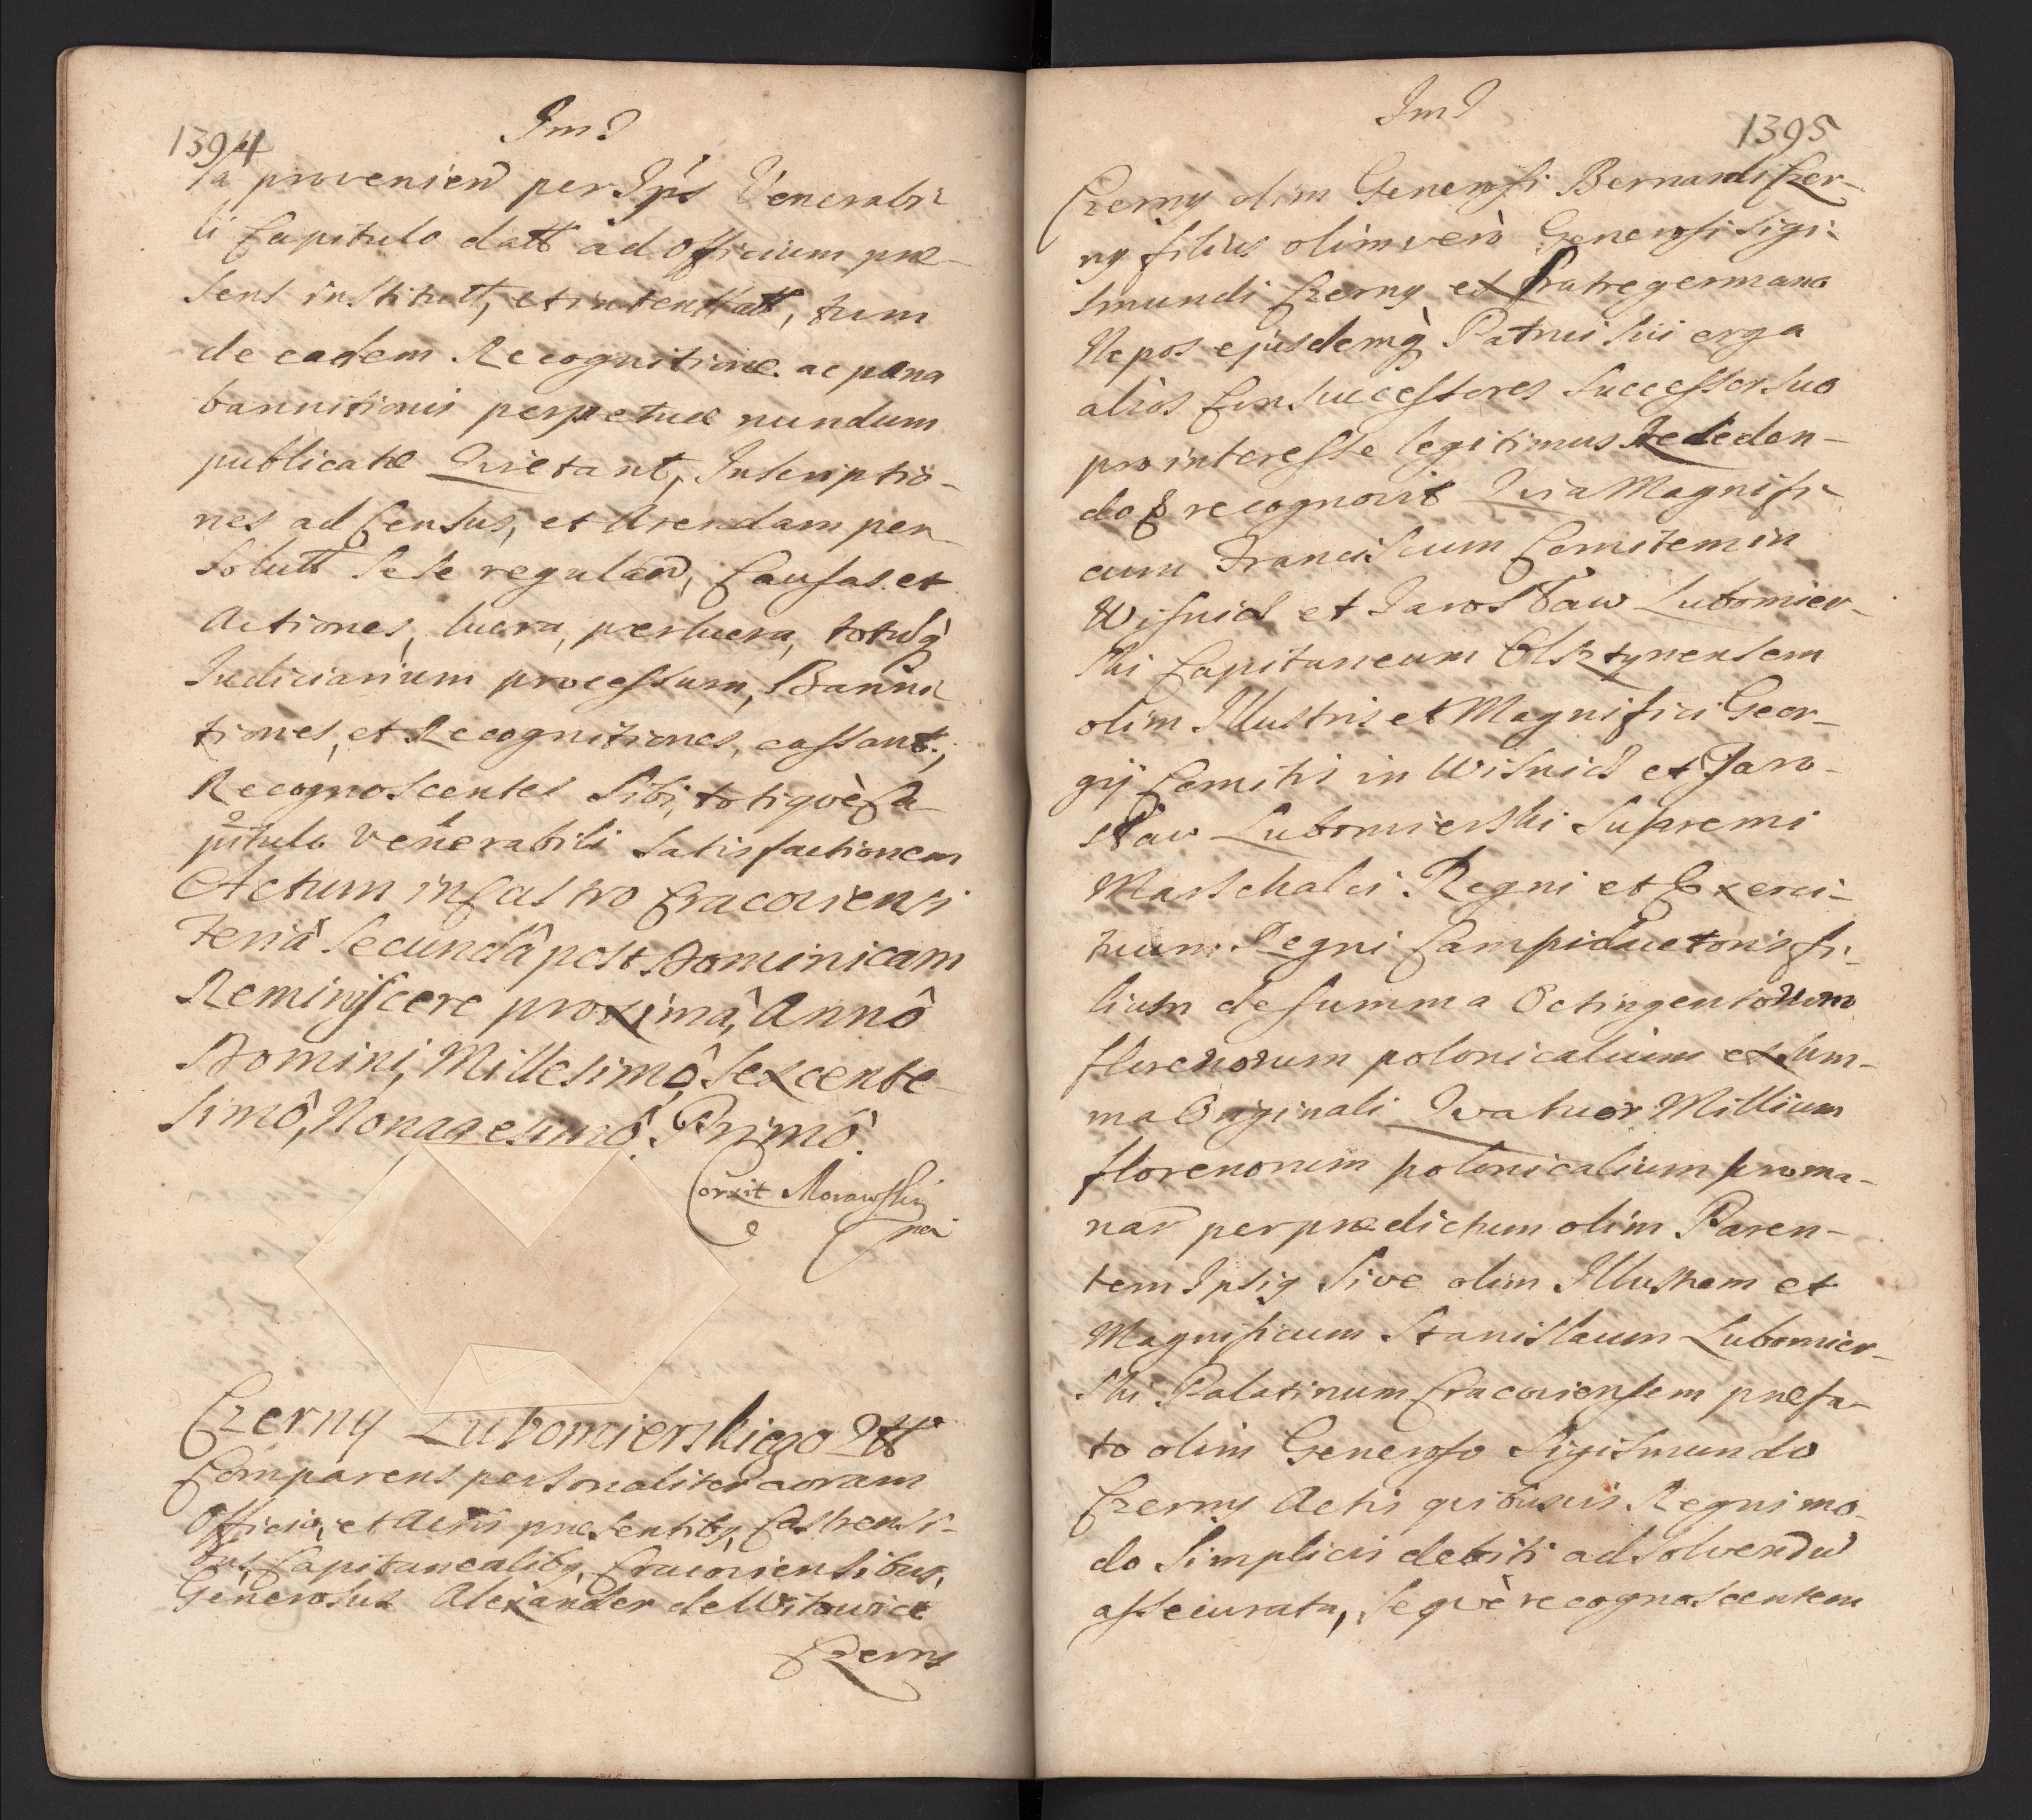 1394
Jm?
sa provenien per Jps Venerabi
li Capitulo datt ad Officium præ-
sens institutt, et intentatt, tum
de eadem Recognitione ac pæna
bannitionis perpetuæ nundum
publicatæ Quietant, Inscriptio-
nes ad Census, et Arendam per
solutt sese regulan, Causas et
Actiones, lucra, perlucra, totusq
Iudiciarium processum, Banni
tiones, et Recognitiones, cassant,
Recognoscentes sibi, totiquè Ca-
pitulo Venerabili satisfactionem
Actum in Castro Cracoviensi
Feriâ Secundâ post Dominicam
Reminiscere proximâ, Annô
Domini, Millesimô, Sexcente-
simô, Nonagesimô, Primô.
Corxit Morawski
mp
Czerny Lubomierskiego Qtt
Comparens personaliter coram
Officio, et Actis præsentiby, Castrensi-
bus, Capitanealiby, Cracoviensibus,
Generosus Alexander de Witowice
Czerny
Jm?
1395
Czerny olim Generosi Bernardi Czer-
ny filius olim verò Generosi Sigi-
smundi Czerny ex Fratre germano
Nepos ejusdemq Patrui sui erga
alios Consuccessores Successor suo
pro interesse legitimus
do recognovit Quia Magnifi-
cum Franciscum Comitem in
Wisnicz et Jarosław Lubomier-
ski Capitaneum Olsztynensem
olim Illustris et Magnifici Geor-
gij Comitis in Wisnicz et Jaro-
sław Lubomierski Supremi
Marschalci Regni et Exerci-
tuum Regni Campiductoris fi-
lium de summa Octingentorum
florenorum polonicalium ex sum-
ma Originali Quatuor Millium
florenorum polonicalium proma-
nan per prædictum olim Paren-
tem Ipsiq sive olim Illustrem et
Magnificum Stanislaum Lubomier-
ski Palatinum Cracoviensem præfa-
to olim Generoso Sigismundo
Czerny Actis quibusvis Regni mo-
do simplicis debiti ad solvendu
assecurata, sequè recognoscentem